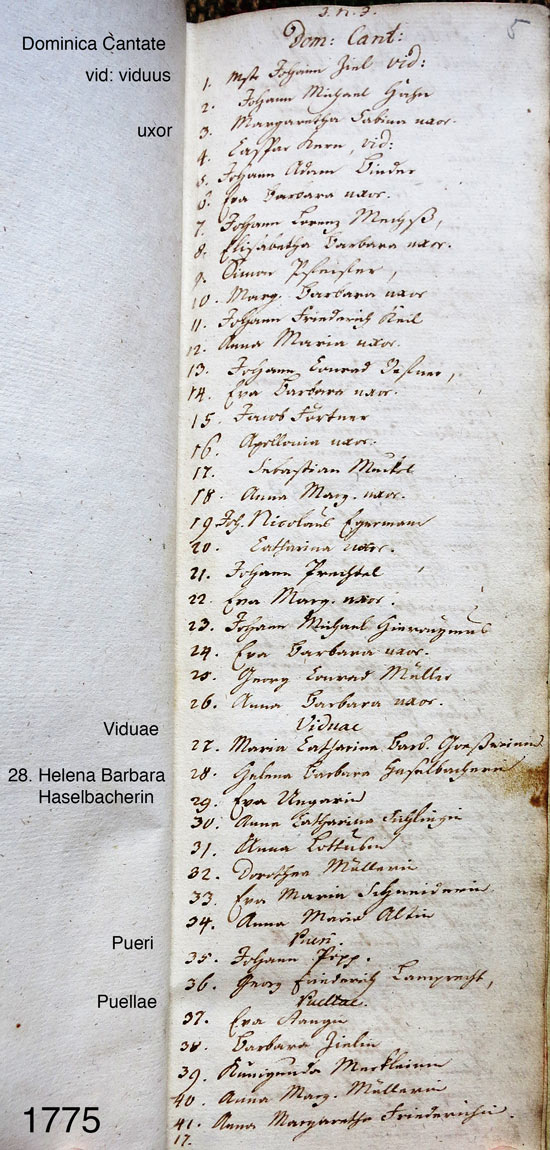 5
Dom: Cant:
Dominica Cantate
1. Mstr Johann Ziel vid:
vid: viduus
2. Johann Michael Hahn
3. Margaretha Sabina uxor.
uxor
4. Caspar Kern, vid:
5. Johann Adam Binder
6. Eva Barbara uxor.
7. Johann Lorenz
8. Elisabetha Barbara uxor.
9. Simon Pfeiffer,
10. Marg. Barbara uxor
11. Johann Friederich Keil
12. Anna Maria uxor.
13. Johann Conrad
14. Eva Barbara uxor.
15. Jacob Förtner
16. Apollonia uxor.
17. Sebastian Muckel
18. Anna Marg. uxor.
19. Joh. Nicolaus Egermann
20. Catharina uxor.
21. Johann Prechtel
22. Eva Marg. uxor.
23. Johann Michael Hieronÿmus
24. Eva Barbara uxor.
25. Georg Conrad Müller
26. Anna Barbara uxor.
Viduae
Viduae
27. Maria Catharina Barb.
28. Helena Barbara Haselbacherin
28. Helena Barbara
Haselbacherin
29. Eva Ungarin
30. Anna Catharina
31. Anna
32. Dorothea Müllerin
33. Eva Maria Schneiderin
34. Anna Maria Altin
Pueri.
Pueri
35. Johann Popp.
36. Georg Friederich Lamprecht,
Puellae.
Puellae
37. Eva
38. Barbara Zielin
39. Kunigunda Merkleinin
40. Anna Marg. Müllerin
41. Anna Margaretha Friederichin.
17.
1775